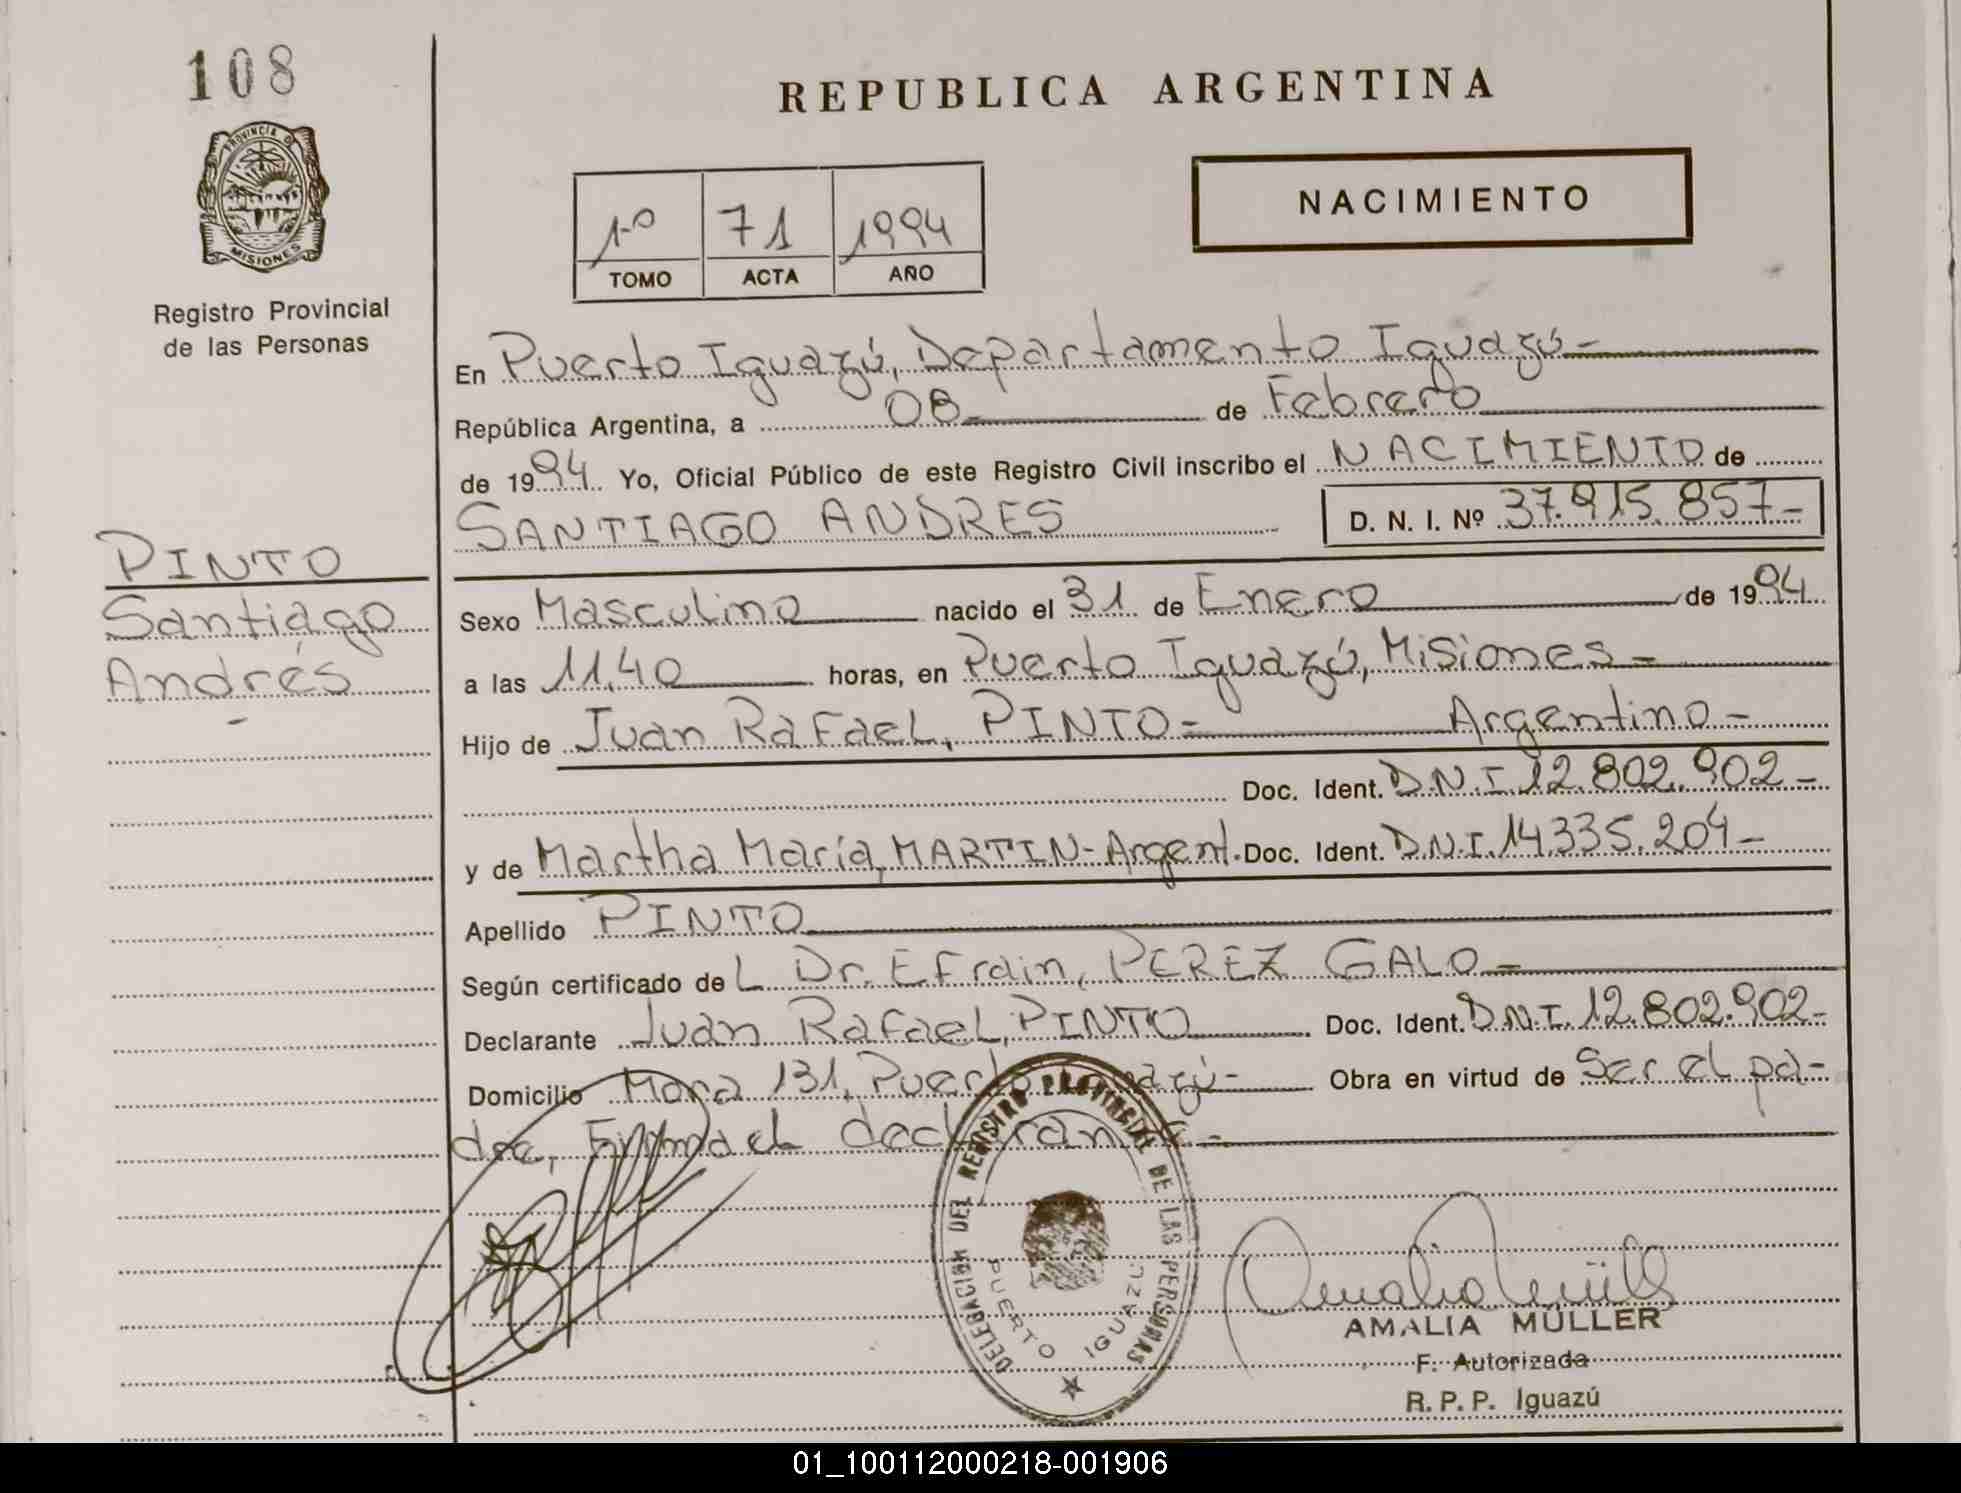 108
PROVINCIA DE
MISIONES
Registro Provincial
de las Personas
REPUBLICA ARGENTINA
1º 71 1994
TOMO ACTA AÑO
NACIMIENTO
En Puerto Iguazú, Departamento Iguazú-
República Argentina, a 08 de Febrero
de 1994 Yo, Oficial Público de este Registro Civil inscribo el NACIMIENTO de
SANTIAGO ANDRES D. N. I. Nº 37.915.857-
PINTO
Santiago
Andrés
-
Sexo Masculino nacido el 31 de Enero de 1994
a las 11,40 horas, en Puerto Iguazú, Misiones-
Hijo de Juan Rafael, PINTO= Argentino-
Doc. Ident. D.N.I.12.802.902-
y de Martha María, MARTIN-Argent. Doc. Ident. D.N.I.14.335.204-
Apellido PINTO
Según certificado de L Dr. Efrain, PEREZ GALO-
Declarante Juan Rafael, PINTO Doc. Ident. D.N.I.12.802.902-
Domicilio 131, Puerto Iguazú- Obra en virtud de Ser el pa-
dre, Firma el declarante-
DELEGACION DEL REGISTRO PROVINCIAL DE LAS PERSONAS
PUERTO IGUAZU
Amalia Müller
AMALIA MÜLLER
F. Autorizada
R. P. P. Iguazú
01_100112000218-001906